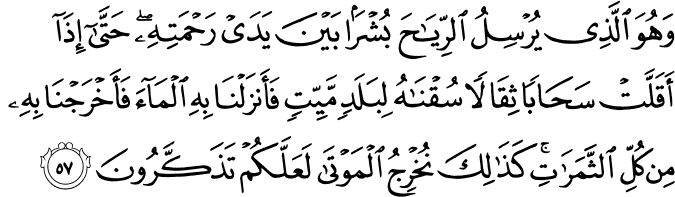 وَهُوَ ٱلَّذِى يُرْسِلُ ٱلرِّيَـٰحَ بُشْرًۢا بَيْنَ يَدَىْ رَحْمَتِهِۦ ۖ حَتَّىٰٓ إِذَآ
أَقَلَّتْ سَحَابًا ثِقَالًا سُقْنَـٰهُ لِبَلَدٍ مَّيِّتٍ فَأَنزَلْنَا بِهِ ٱلْمَآءَ فَأَخْرَجْنَا بِهِۦ
مِن كُلِّ ٱلثَّمَرَٰتِ ۚ كَذَٰلِكَ نُخْرِجُ ٱلْمَوْتَىٰ لَعَلَّكُمْ تَذَكَّرُونَ ٥٧